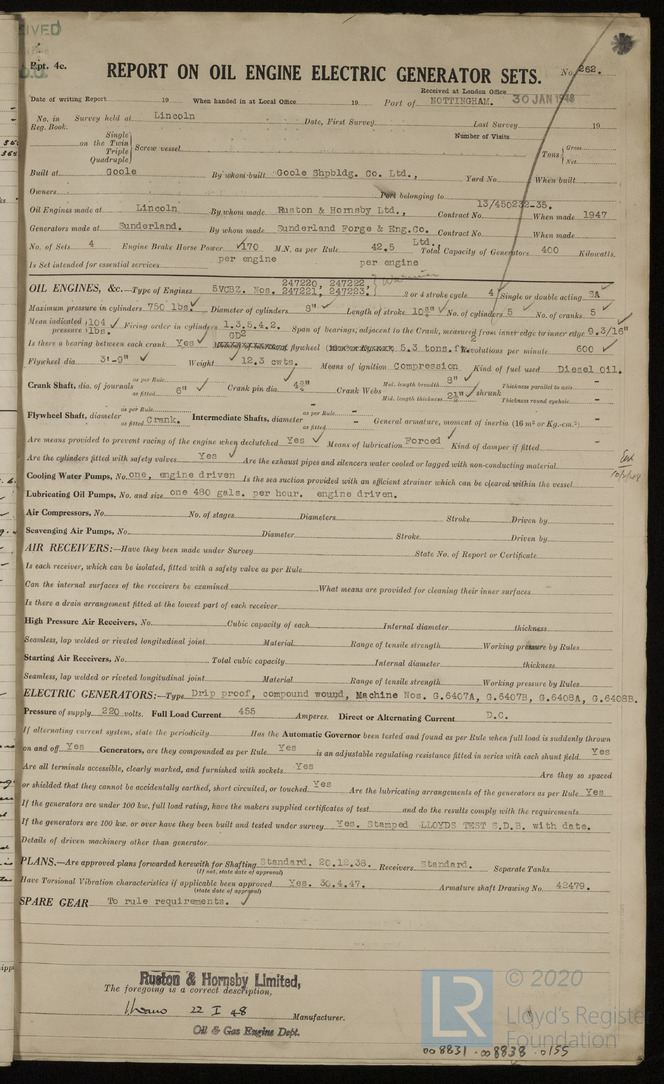 Rpt. 4c.
REPORT ON OIL ENGINE ELECTRIC GENERATOR SETS. No. 262.
Received at London Office
Date of writing Report 19 When handed in at Local Office 19 Port of NOTTINGHAM. 30 JAN 1948
No. in Reg. Book. Survey held at Lincoln Date, First Survey Last Survey 19
Number of Visits
Single
on the Twin
Triple
Quadruple
Screw vessel
Tons Gross
Net
Built at Goole By whom built Goole Shpbldg. Co. Ltd., Yard No. When built
Owners Port belonging to
Oil Engines made at Lincoln By whom made Ruston & Hornsby Ltd., Contract No. 13/450232-35. When made 1947
Generators made at Sunderland. By whom made Sunderland Forge & Eng.Co. Ltd., Contract No. When made
No. of Sets 4 Engine Brake Horse Power 170 per engine M.N. as per Rule 42.5 per engine Total Capacity of Generators 400 Kilowatts.
Is Set intended for essential services
OIL ENGINES, &c.—Type of Engines 5VCBZ. Nos. 247220, 247222 247221, 247223. 2 or 4 stroke cycle 4 Single or double acting SA
Maximum pressure in cylinders 750 lbs. Diameter of cylinders 8" Length of stroke No. of cylinders 5 No. of cranks 5
Mean indicated pressure 104 lbs. Firing order in cylinders 1.3.5.4.2. Span of bearings, adjacent to the Crank, measured from inner edge to inner edge 9.3/16"
Is there a bearing between each crank Yes GD2 flywheel 5.3 tons.f2 Revolutions per minute 600
Flywheel dia. 3'-9" Weight 12.3 cwts. Means of ignition Compression Kind of fuel used Diesel Oil.
Crank Shaft, dia. of journals as per Rule as fitted 6" Crank pin dia. Crank Webs Mid. length breadth 8" Mid. length thickness 2½" shrunk Thickness parallel to axis - Thickness round eyehole -
Flywheel Shaft, diameter as per Rule as fitted Crank. Intermediate Shafts, diameter as per Rule - as fitted - General armature, moment of inertia (16 m² or Kg.-cm².) -
Are means provided to prevent racing of the engine when declutched Yes Means of lubrication Forced Kind of damper if fitted -
Are the cylinders fitted with safety valves Yes Are the exhaust pipes and silencers water cooled or lagged with non-conducting material
Cooling Water Pumps, No. one, engine driven Is the sea suction provided with an efficient strainer which can be cleared within the vessel
Lubricating Oil Pumps, No. and size one 480 gals. per hour. engine driven.
Air Compressors, No. No. of stages Diameters Stroke Driven by
Scavenging Air Pumps, No. Diameter Stroke Driven by
AIR RECEIVERS:—Have they been made under Survey State No. of Report or Certificate
Is each receiver, which can be isolated, fitted with a safety valve as per Rule
Can the internal surfaces of the receivers be examined What means are provided for cleaning their inner surfaces
Is there a drain arrangement fitted at the lowest part of each receiver
High Pressure Air Receivers, No. Cubic capacity of each Internal diameter thickness
Seamless, lap welded or riveted longitudinal joint Material Range of tensile strength Working pressure by Rules
Starting Air Receivers, No. Total cubic capacity Internal diameter thickness
Seamless, lap welded or riveted longitudinal joint Material Range of tensile strength Working pressure by Rules
ELECTRIC GENERATORS:—Type Drip proof, compound wound, Machine Nos. G.6407A, G.6407B, G.6408A, G.6408B.
Pressure of supply 220 volts. Full Load Current 455 Amperes. Direct or Alternating Current D.C.
If alternating current system, state the periodicity Has the Automatic Governor been tested and found as per Rule when full load is suddenly thrown
on and off Yes Generators, are they compounded as per Rule Yes is an adjustable regulating resistance fitted in series with each shunt field Yes
Are all terminals accessible, clearly marked, and furnished with sockets Yes Are they so spaced
or shielded that they cannot be accidentally earthed, short circuited, or touched Yes Are the lubricating arrangements of the generators as per Rule Yes
If the generators are under 100 kw. full load rating, have the makers supplied certificates of test and do the results comply with the requirements
If the generators are 100 kw. or over have they been built and tested under survey Yes. Stamped LLOYDS TEST S.D.B. with date.
Details of driven machinery other than generator
PLANS.—Are approved plans forwarded herewith for Shafting Standard. 20.12.38. Receivers Standard. Separate Tanks
(If not, state date of approval)
Have Torsional Vibration characteristics if applicable been approved Yes. 30.4.47. Armature shaft Drawing No. 42479.
(state date of approval)
SPARE GEAR To rule requirements.
Ruston & Hornsby Limited,
The foregoing is a correct description,
22 I 48 Manufacturer.
Oil & Gas Engine Dept.
LR © 2020
Lloyd's Register
Foundation
008831-008838-0155